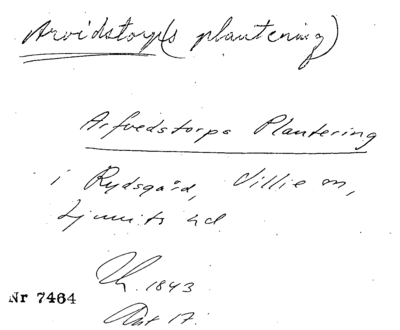 Arvidstorp(s plantering)
Arfvedstorps Plantering
i Rydsgård, Villie sn,
Ljunits hd
1843
Nr 7464
Akt 17.